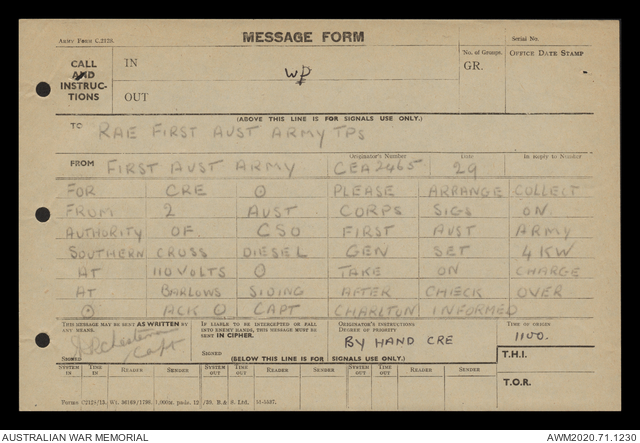 Army Form C.2128.
MESSAGE FORM
Serial No.
CALL AND INSTRUC-TIONS
IN
OUT
WP
No. of Groups.
GR.
OFFICE DATE STAMP
(ABOVE THIS LINE IS FOR SIGNALS USE ONLY.)
TO RAE FIRST AUST ARMY TPS
FROM FIRST AUST ARMY
Originator's Number CEA 2465
Date 29
In Reply to Number
FOR CRE O PLEASE ARRANGE COLLECT
FROM 2 AUST CORPS SIGS ON
AUTHORITY OF CSO FIRST AUST ARMY
SOUTHERN CROSS DIESEL GEN SET 4 KW
AT 110 VOLTS O TAKE ON CHARGE
AT BARLOWS SIDING AFTER CHECK OVER
O ACK O CAPT CHARLTON INFORMED
THIS MESSAGE MAY BE SENT AS WRITTEN BY ANY MEANS.
IF LIABLE TO BE INTERCEPTED OR FALL INTO ENEMY HANDS, THIS MESSAGE MUST BE SENT IN CIPHER.
ORIGINATOR'S INSTRUCTIONS
DEGREE OF PRIORITY
TIME OF ORIGIN
Capt
BY HAND CRE
1100.
SIGNED
SIGNED
(BELOW THIS LINE IS FOR SIGNALS USE ONLY.)
T.H.I.
SYSTEM IN
TIME IN
READER
SENDER
SYSTEM OUT
TIME OUT
READER
SENDER
SYSTEM OUT
TIME OUT
READER
SENDER
T.O.R.
AUSTRALIAN WAR MEMORIAL
AWM2020.71.1230